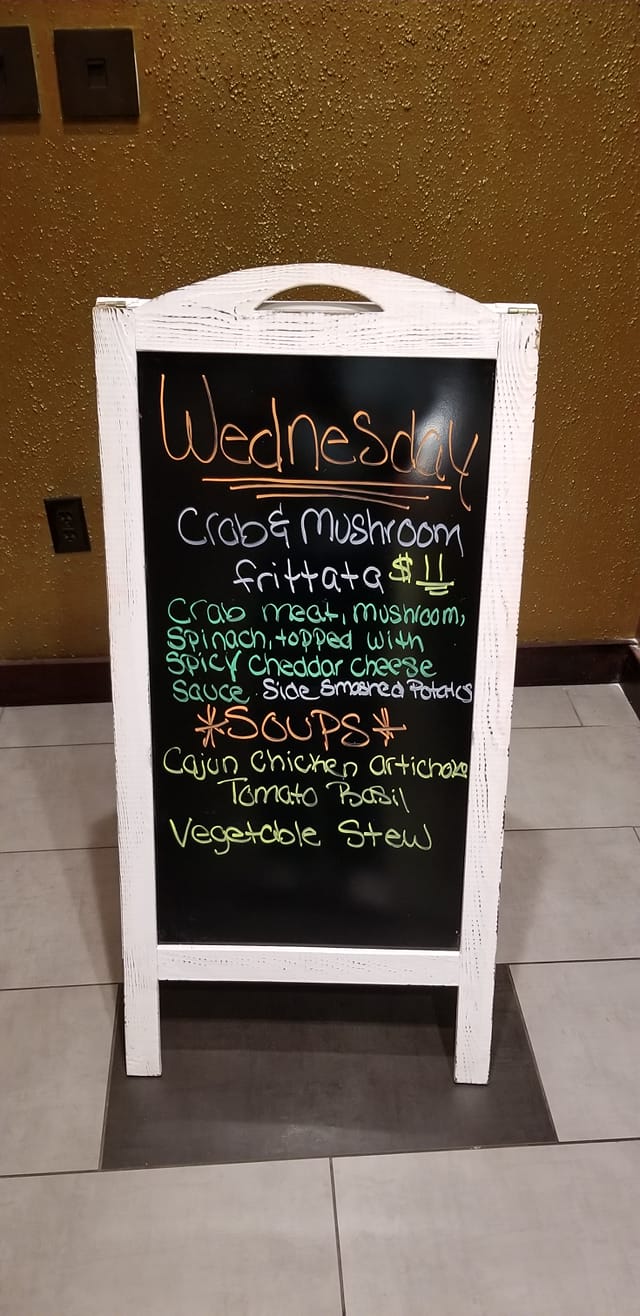 Wednesday
Crab & Mushroom
frittata $11
Crab meat, mushroom,
Spinach, topped with
Spicy Cheddar cheese
Sauce. Side Smashed Potatoes
*SOUPS*
Cajun Chicken Artichoke
Tomato Basil
Vegetable Stew